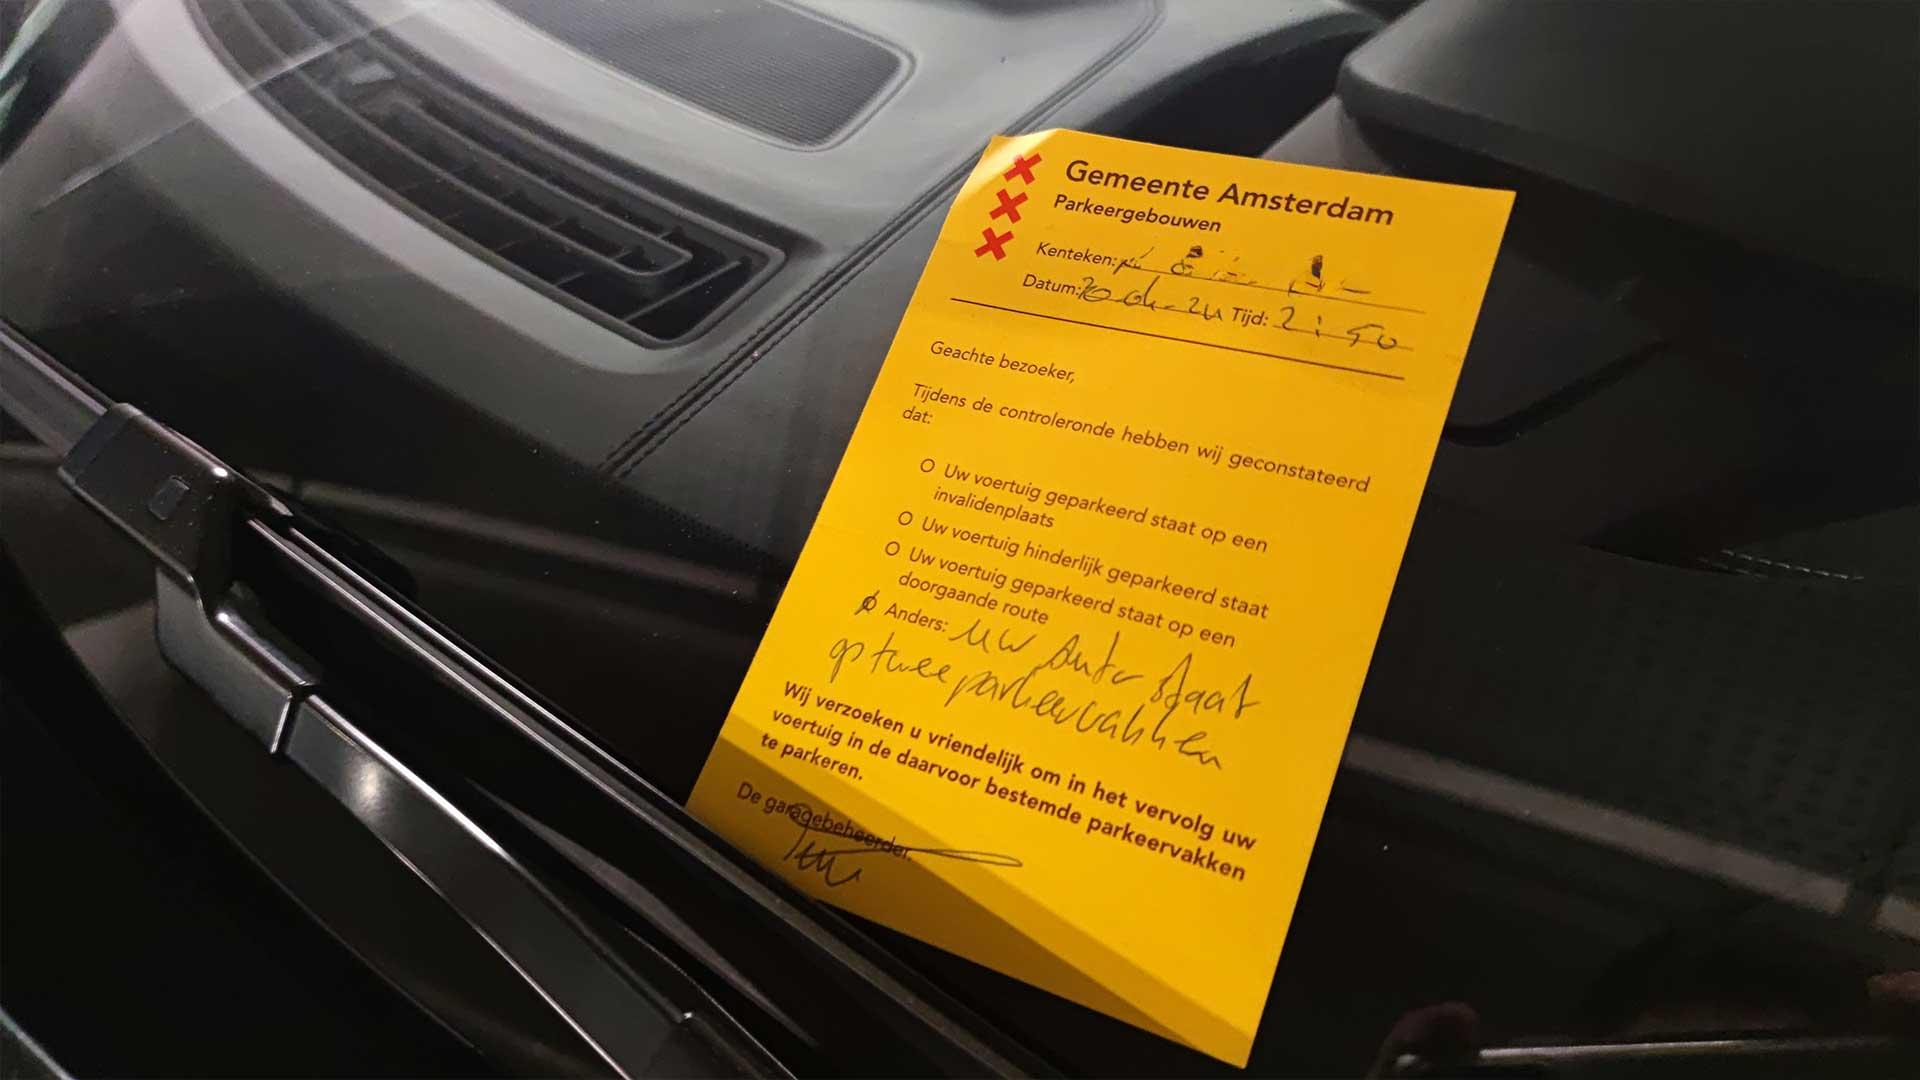 Gemeente Amsterdam
Parkeergebouwen
Kenteken:
Datum: Tijd: 2:50
Geachte bezoeker,
Tijdens de controleronde hebben wij geconstateerd
dat:
O Uw voertuig geparkeerd staat op een
invalidenplaats
O Uw voertuig hinderlijk geparkeerd staat
O Uw voertuig geparkeerd staat op een
doorgaande route
Anders: uw auto staat
op twee parkeervakken
Wij verzoeken u vriendelijk om in het vervolg uw
voertuig in de daarvoor bestemde parkeervakken
te parkeren.
De garagebeheerder.